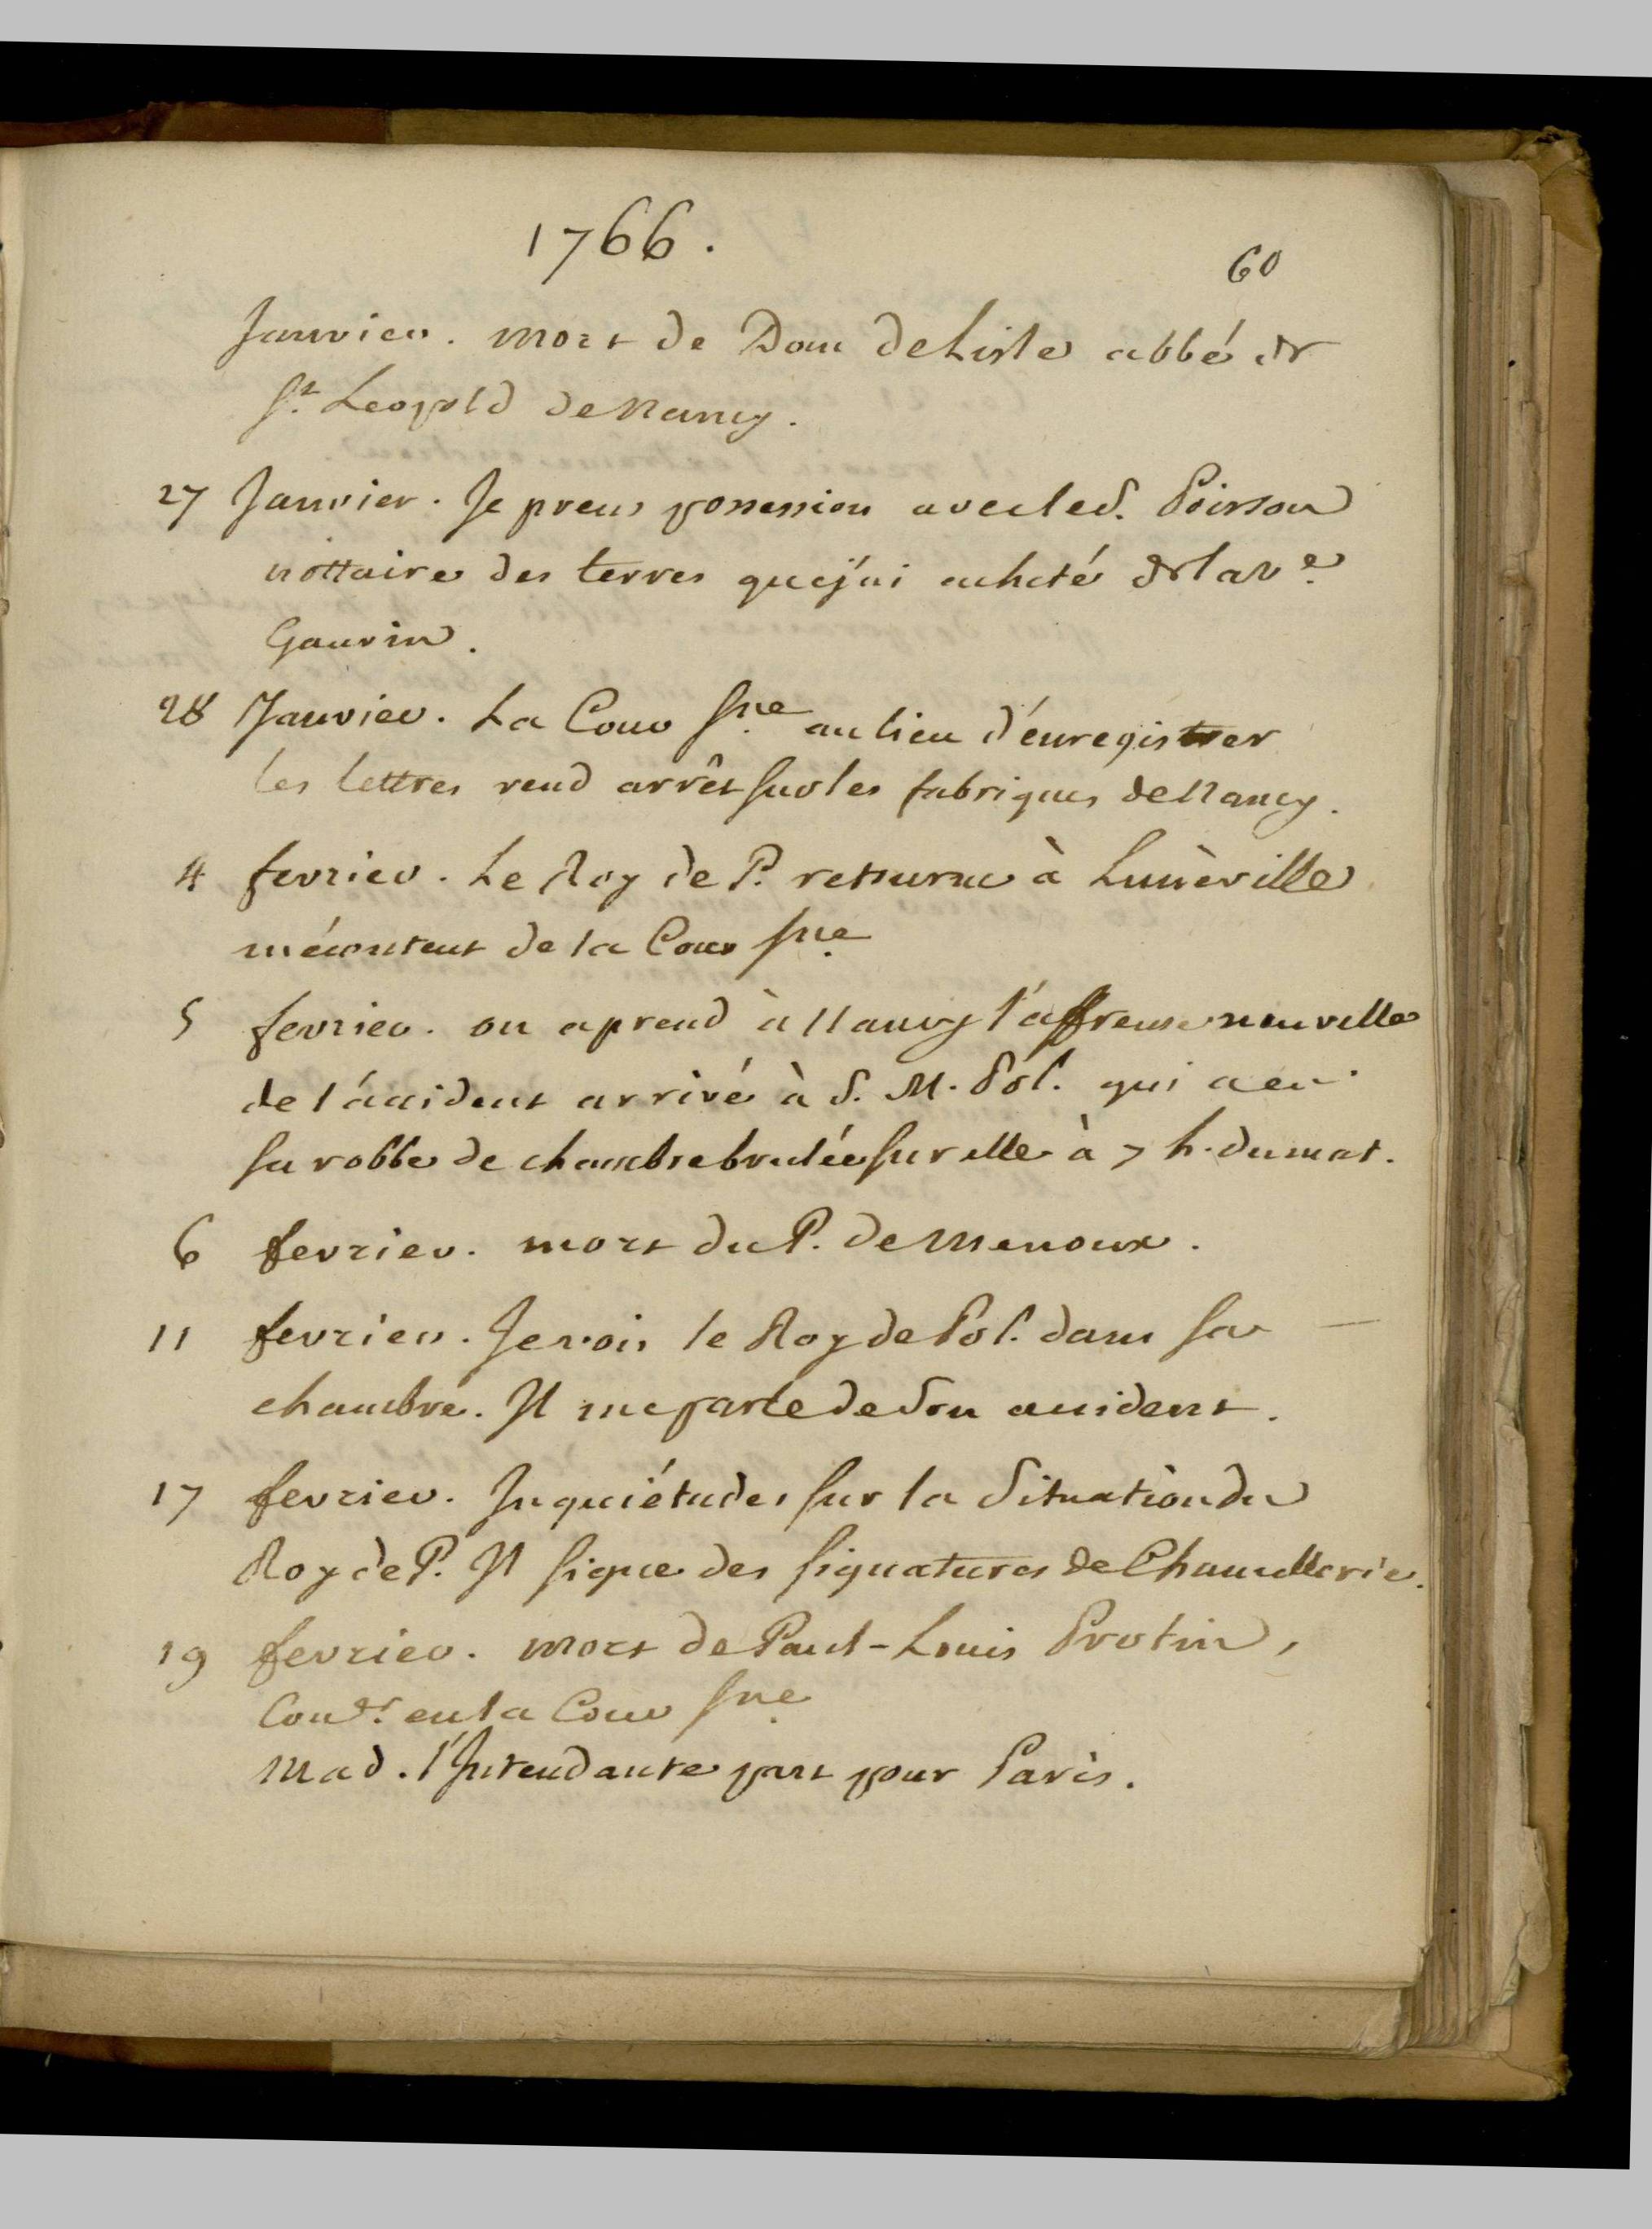 1766.
60
Janvier. mort de Dom de Lisle abbé de
St. Leopold de Nancy.
27 Janvier. Je prens possession avec le S. Poirson
nottaire des terres que j'ai acheté de la Ve.
Gauvin.
28 Janvier. La Cour Sne. au lieu d'énregistrer
les lettres rend arrêt sur les fabriques de Nancy.
4 fevrier. Le Roy de P. retourne à Lunèville
mécontent de la Cour Sne.
5 fevrier. on aprend à Nancy l'affreuse nouvelle
de l'accident arrivé à S. M. Pol. qui a eu
sa robbe de chambre brulée sur elle à 7 h. du mat.
6 fevrier. mort du P. de Menoux.
11 fevrier. Je vois le Roy de Pol. dans sa
chambre. Il me parle de son accident.
17 fevrier. Inquiétudes sur la Situation du
Roy de P. Il signe des signatures de Chancellerie.
19 fevrier. mort de Paul-Louis Protin,
Coner. en la Cour Sne.
Mad. l'Intendante part pour Paris.